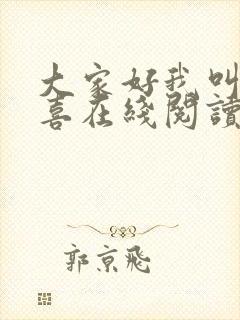 大家好我叫
喜在綫閱讀
郭京飛